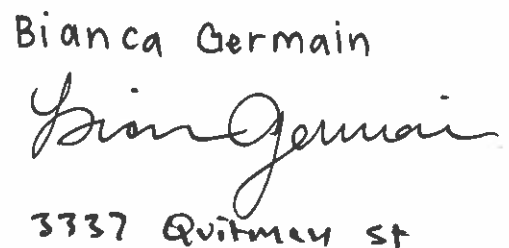 Bianca Germain
Bian Germai
3337 Quitman St